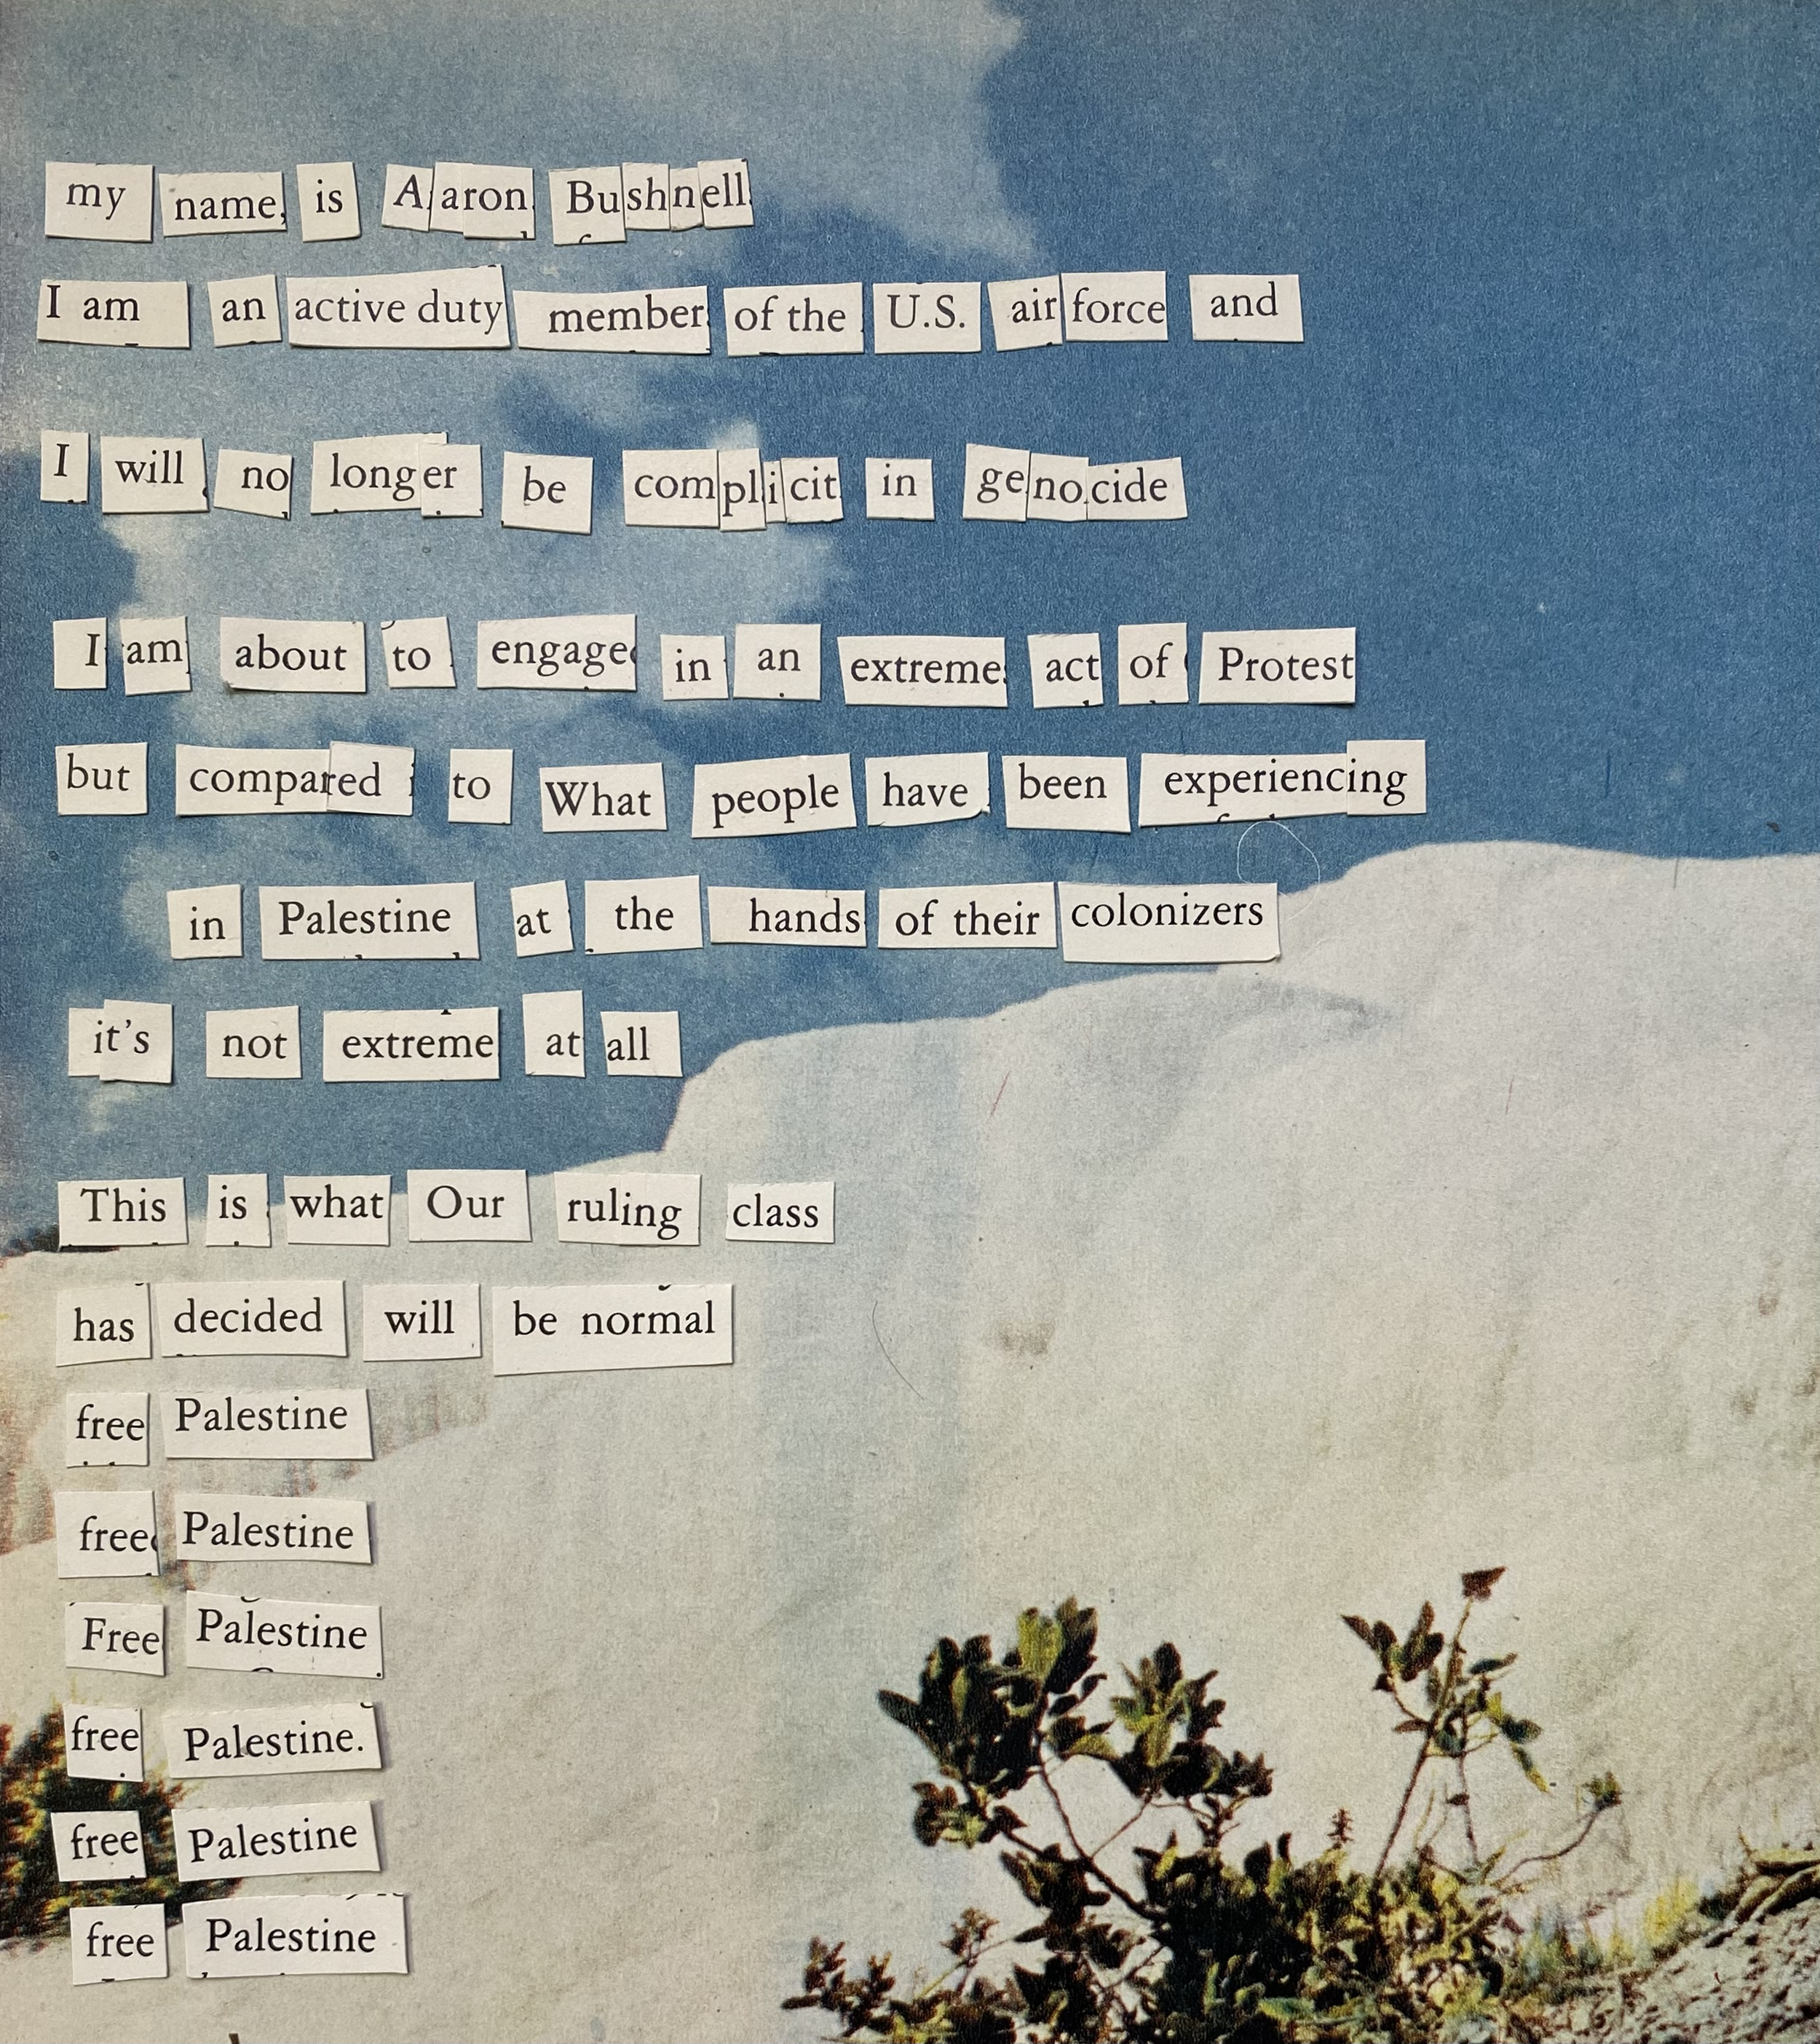 my name is Aaron Bushnell
I am an active duty member of the U.S. air force and
I will no longer be complicit in genocide
I am about to engage in an extreme act of Protest
but compared to What people have been experiencing
in Palestine at the hands of their colonizers
it's not extreme at all
This is what Our ruling class
has decided will be normal
free Palestine
free Palestine
Free Palestine
free Palestine.
free Palestine
free Palestine